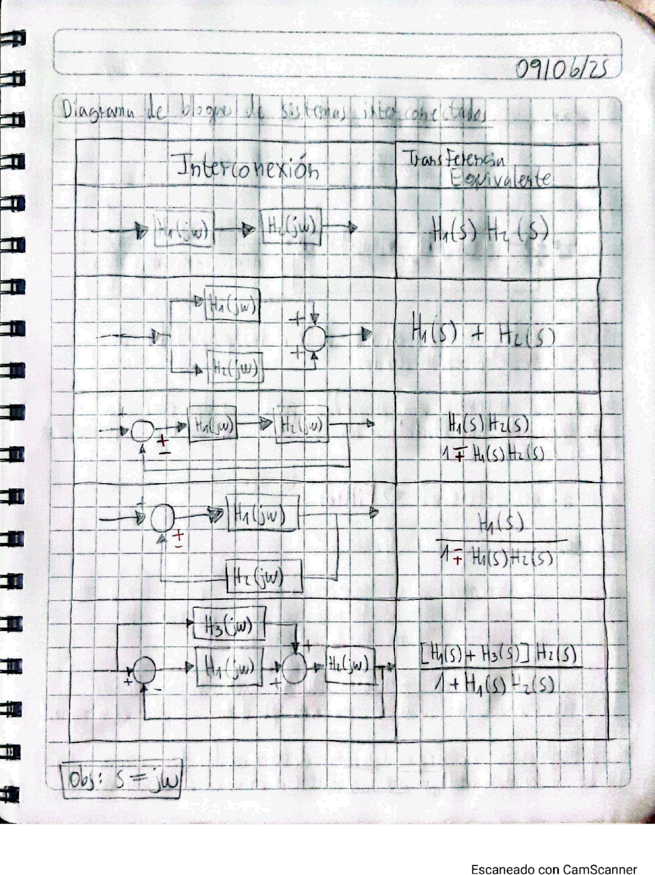 09/06/25
Diagrama de bloques de sistemas interconectados
Interconexión
Transferencia
Equivalente
H₁(jω) H₂(jω)
H₁(s) H₂(s)
H₁(jω)
+
+
H₂(jω)
H₁(s) + H₂(s)
+
±
H₁(jω) H₂(jω)
H₁(s) H₂(s)
1 ∓ H₁(s) H₂(s)
+
±
H₁(jω)
H₂(jω)
H₁(s)
1 ∓ H₁(s) H₂(s)
H₃(jω)
+
H₁(jω) H₂(jω)
+ - +
[H₁(s) + H₃(s)] H₂(s)
1 + H₁(s) H₂(s)
Obs: s = jω
Escaneado con CamScanner